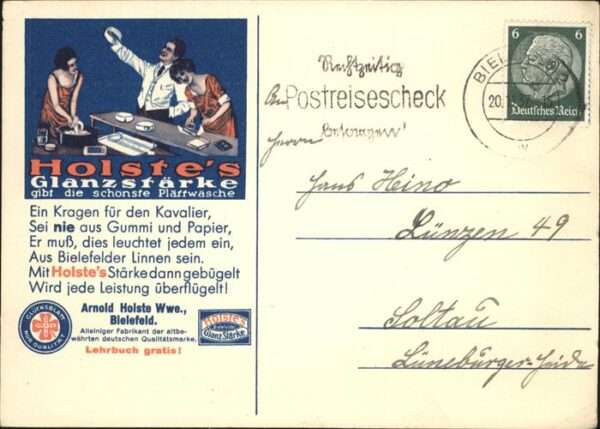 Holste's
Glanzstärke
gibt die schönste Plättwäsche
Ein Kragen für den Kavalier,
Sei nie aus Gummi und Papier,
Er muß, dies leuchtet jedem ein,
Aus Bielefelder Linnen sein.
Mit Holste's Stärke dann gebügelt
Wird jede Leistung überflügelt!
Arnold Holste Wwe.,
Bielefeld.
Alleiniger Fabrikant der altbe-
währten deutschen Qualitätsmarke.
Lehrbuch gratis!
Holste's
Glanz Stärke
Rechtzeitig
An Postreisescheck
besorgen!
Herrn
Hans Heino
Lünzen 49
Soltau
Lüneburger-Heide
BIEL
20.
6 6
Deutsches Reich